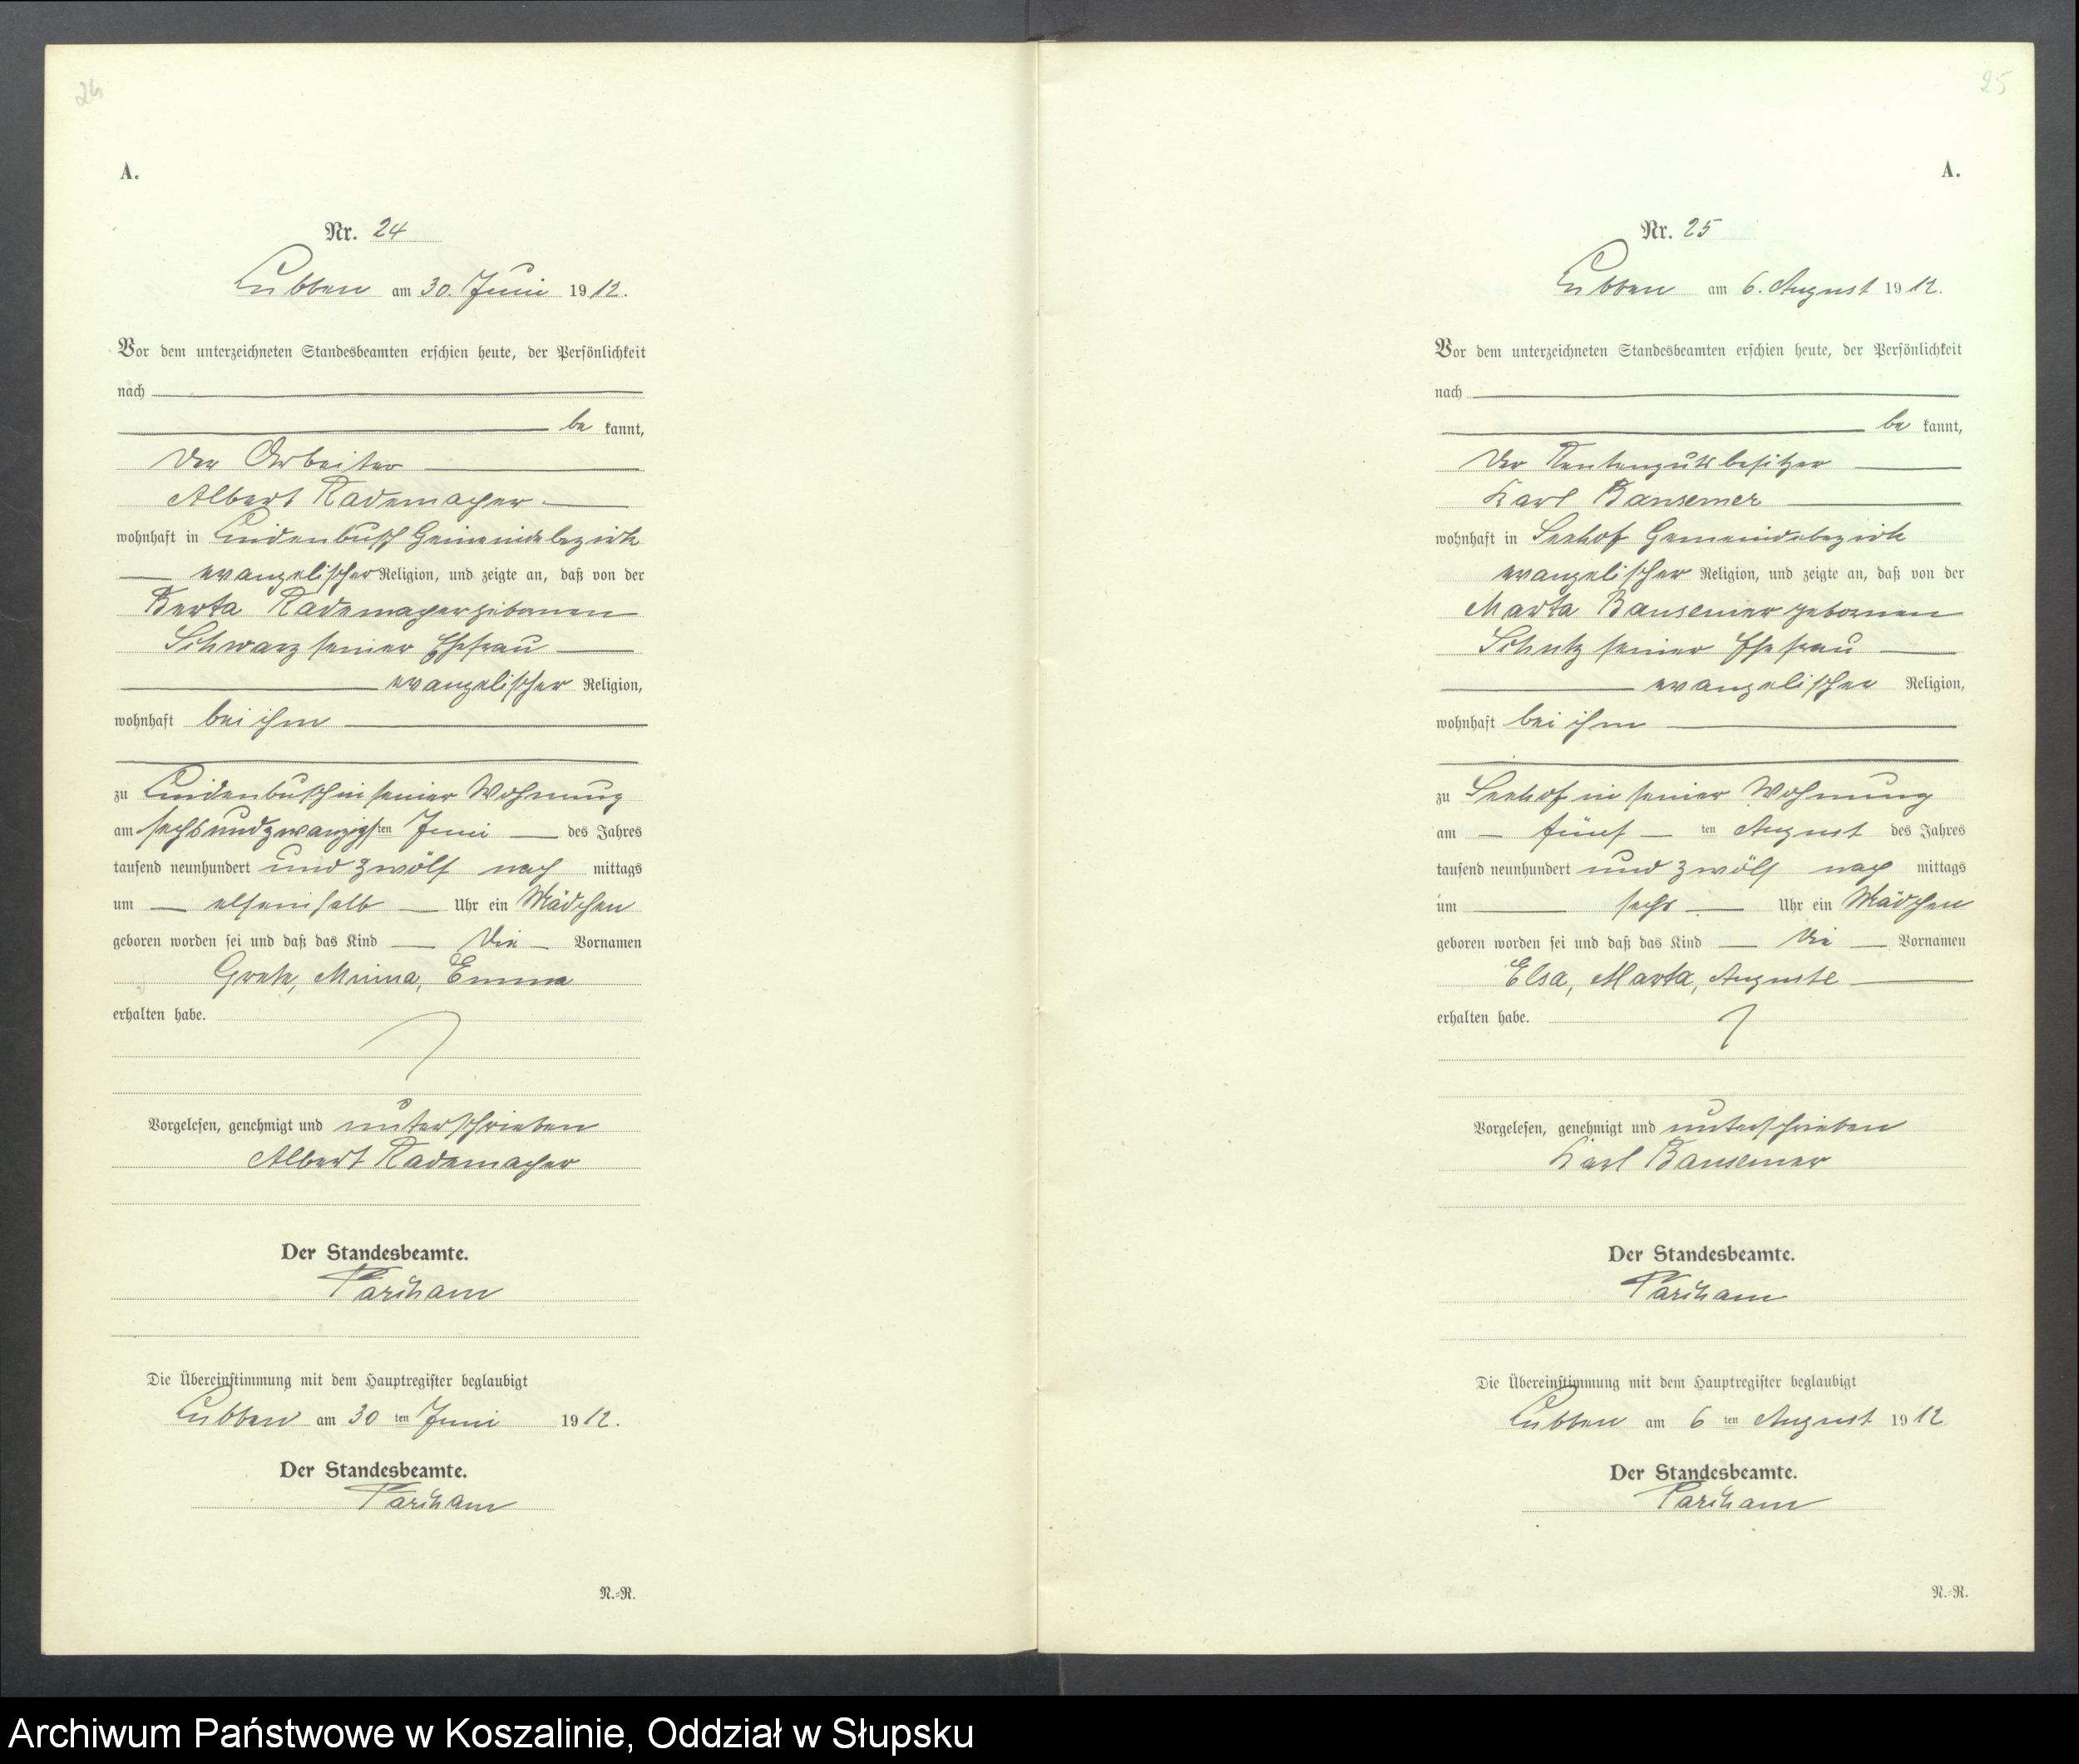 24
A.
Nr. 24
Lubben am 30. Juni 1912.
Vor dem unterzeichneten Standesbeamten erschien heute, der Persönlichkeit
nach
be kannt,
der Arbeiter
Albert Rademacher
wohnhaft in Lindenbusch Gemeindebezirk
evangelischer Religion, und zeigte an, daß von der
Berta Rademacher geborenen
Schwarz seiner Ehefrau
evangelischer Religion,
wohnhaft bei ihm
zu Lindenbusch in seiner Wohnung
am sechsundzwanzigsten Juni des Jahres
tausend neunhundert und zwölf nach mittags
um elfeinhalb Uhr ein Mädchen
geboren worden sei und daß das Kind die Vornamen
Grete, Minna, Emma
erhalten habe.
Vorgelesen, genehmigt und unterschrieben
Albert Rademacher
Der Standesbeamte.
Die Übereinstimmung mit dem Hauptregister beglaubigt
Lubben am 30 ten Juni 1912.
Der Standesbeamte.
N.-R.
25
A.
Nr. 25
Lubben am 6. August 1912.
Vor dem unterzeichneten Standesbeamten erschien heute, der Persönlichkeit
nach
be kannt,
der Rentengutsbesitzer
Karl Bansemer
wohnhaft in Seehof Gemeindebezirk
evangelischer Religion, und zeigte an, daß von der
Marta Bansemer geborenen
seiner Ehefrau
evangelischer Religion,
wohnhaft bei ihm
zu Seehof in seiner Wohnung
am fünf ten August des Jahres
tausend neunhundert und zwölf nach mittags
um sechs Uhr ein Mädchen
geboren worden sei und daß das Kind die Vornamen
Elsa, Marta, Auguste
erhalten habe.
Vorgelesen, genehmigt und unterschrieben
Karl Bansemer
Der Standesbeamte.
Die Übereinstimmung mit dem Hauptregister beglaubigt
Lubben am 6 ten August 1912
Der Standesbeamte.
N.-R.
Archiwum Państwowe w Koszalinie, Oddział w Słupsku